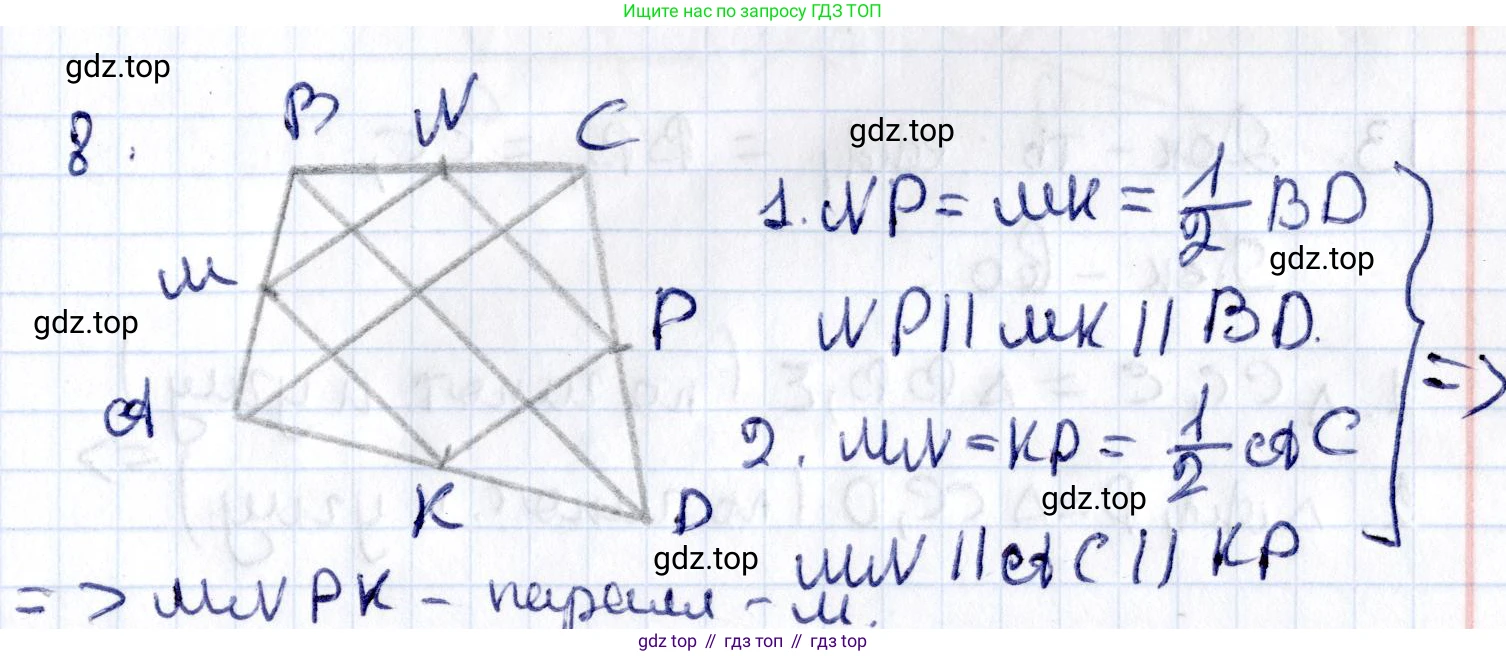 Ищите нас по запросу ГДЗ ТОП
gdz.top
8.
B N C
gdz.top
1. NP = MK = 1/2 BD
gdz.top
M
gdz.top
P
NP || MK || BD.
=>
A
2. MN = KP = 1/2 AC
gdz.top
K
D
gdz.top
MN || AC || KP
=> MNPK - паралл-м.
gdz top // гдз топ // гдз top